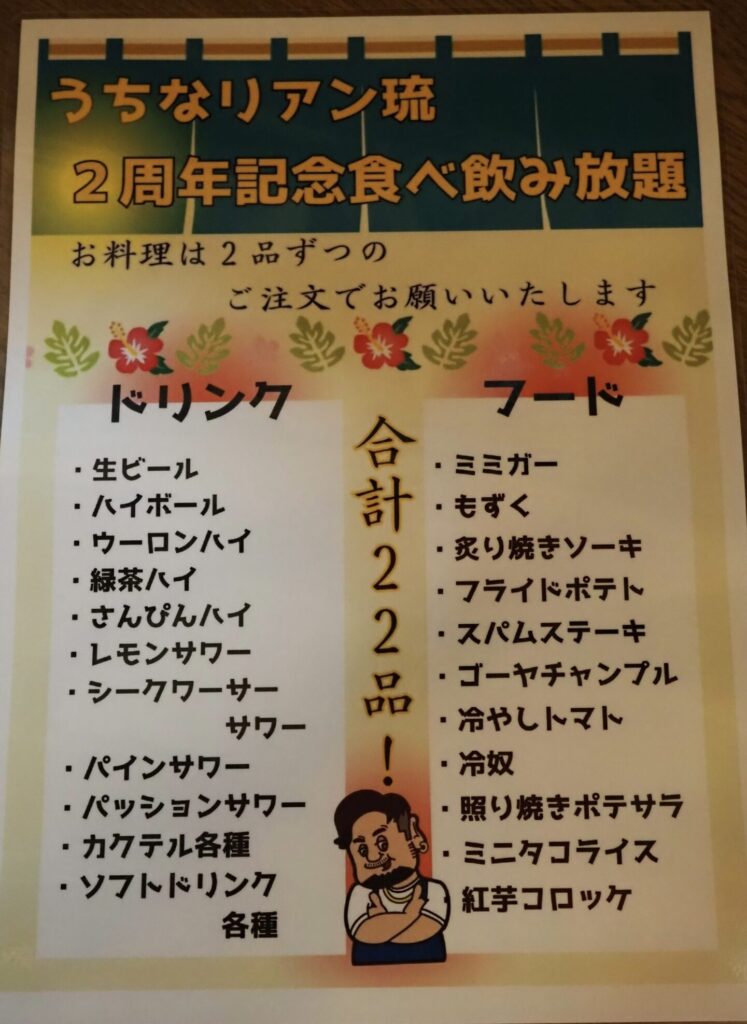 うちなリアン琉
２周年記念食べ飲み放題
お料理は２品ずつの
ご注文でお願いいたします
ドリンク
・生ビール
・ハイボール
・ウーロンハイ
・緑茶ハイ
・さんぴんハイ
・レモンサワー
・シークワーサー
サワー
・パインサワー
・パッションサワー
・カクテル各種
・ソフトドリンク
各種
合計２２品！
フード
・ミミガー
・もずく
・炙り焼きソーキ
・フライドポテト
・スパムステーキ
・ゴーヤチャンプル
・冷やしトマト
・冷奴
・照り焼きポテサラ
・ミニタコライス
紅芋コロッケ